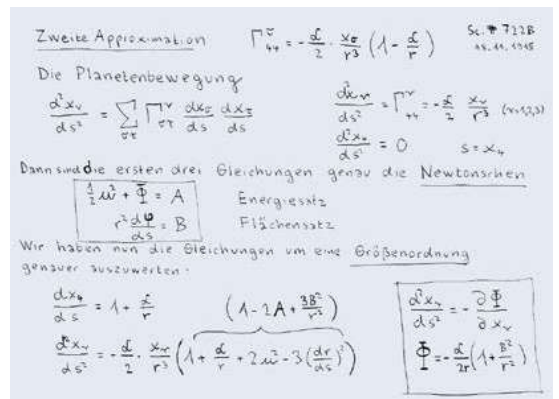 Zweite Approximation Γ₄₄^σ = -α/2 · x_σ/r³ (1 - α/r) Sc. # 722B
18.11.1915
Die Planetenbewegung
d²x_ν/ds² = Σ_στ Γ_στ^ν dx_σ/ds dx_τ/ds
d²x_ν/ds² = Γ₄₄^ν = -α/2 x_ν/r³ (ν=1,2,3)
d²x₄/ds² = 0 s = x₄
Dann sind die ersten drei Gleichungen genau die Newtonschen
½u² + Φ = A Energiesatz
r² dφ/ds = B Flächensatz
Wir haben nun die Gleichungen um eine Größenordnung
genauer auszuwerten:
dx₄/ds = 1 + α/r (1 - 2A + 3B²/r²)
d²x_ν/ds² = -α/2 · x_ν/r³ (1 + α/r + 2u² - 3(dr/ds)²)
d²x_ν/ds² = -∂Φ/∂x_ν
Φ = -α/2r (1 + B²/r²)